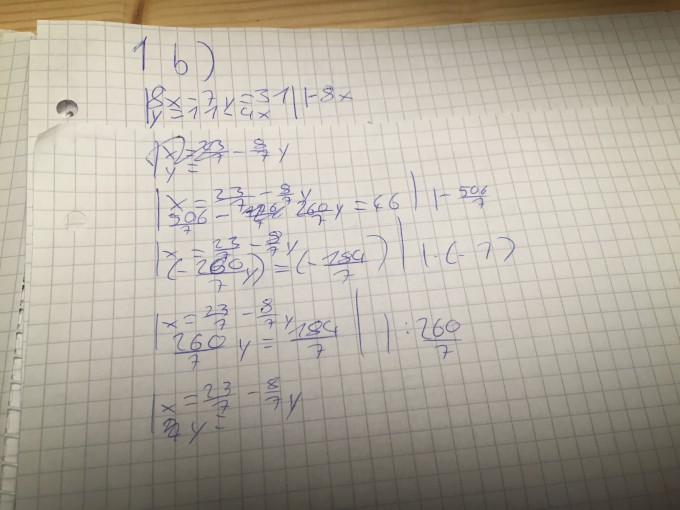 1 b)
|8x = 7y = 31 | |-8x
|y = 11 - 4x
x = 23/7 - 8/7 y
y =
|x = 23/7 - 8/7 y
|506/7 - 260/7 y = 46 | |- 506/7
|x = 23/7 - 8/7 y
|(-260/7 y) = (-184/7) | |·(-1)
|x = 23/7 - 8/7 y
|260/7 y = 184/7 | |: 260/7
|x = 23/7 - 8/7 y
y =